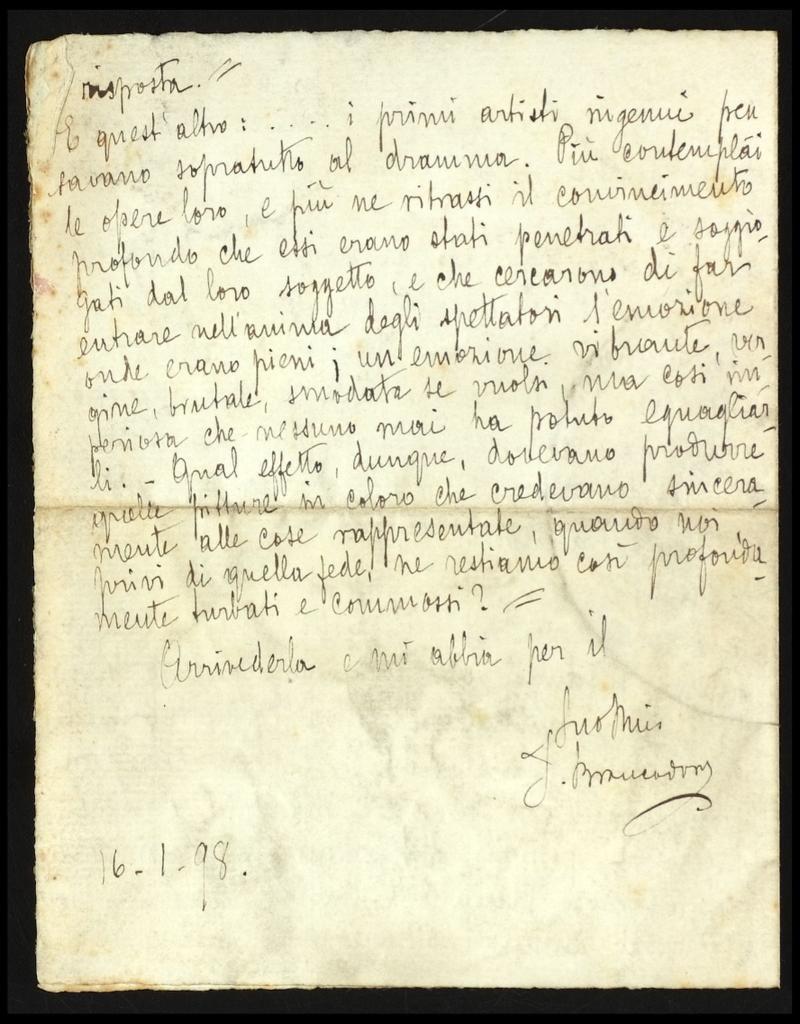 risposta. =
E quest'altro: ..... i primi artisti ingenui pen
savano sopratutto al dramma. Più contemplai
le opere loro, e più ne ritrassi il convincimento
profondo che essi erano stati penetrati e soggio-
gati dal loro soggetto, e che cercarono di far
entrare nell'anima degli spettatori l'emozione
onde erano pieni; un'emozione vibrante, ver
gine, brutale, smodata se vuolsi, ma così im-
periosa che nessuno mai ha potuto eguagliar-
li. - Qual effetto, dunque, dovevano produrre
quelle pitture in coloro che credevano sincera-
mente alle cose rappresentate, quando noi
privi di quella fede, ne restiamo così profonda-
mente turbati e commossi? =
Arrivederla e mi abbia per il
Suo
16-1-98.